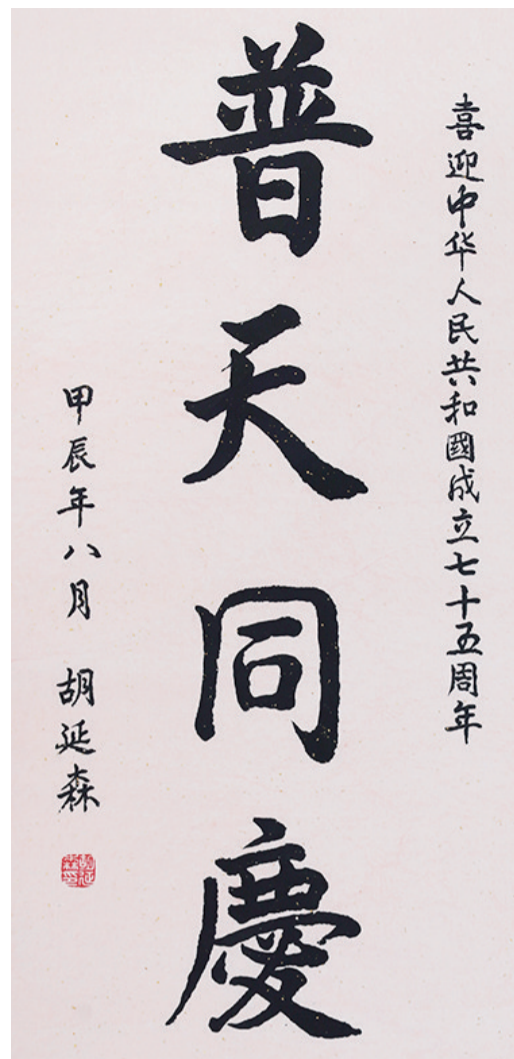 喜迎中华人民共和國成立七十五周年
普天同慶
甲辰年八月 胡延森